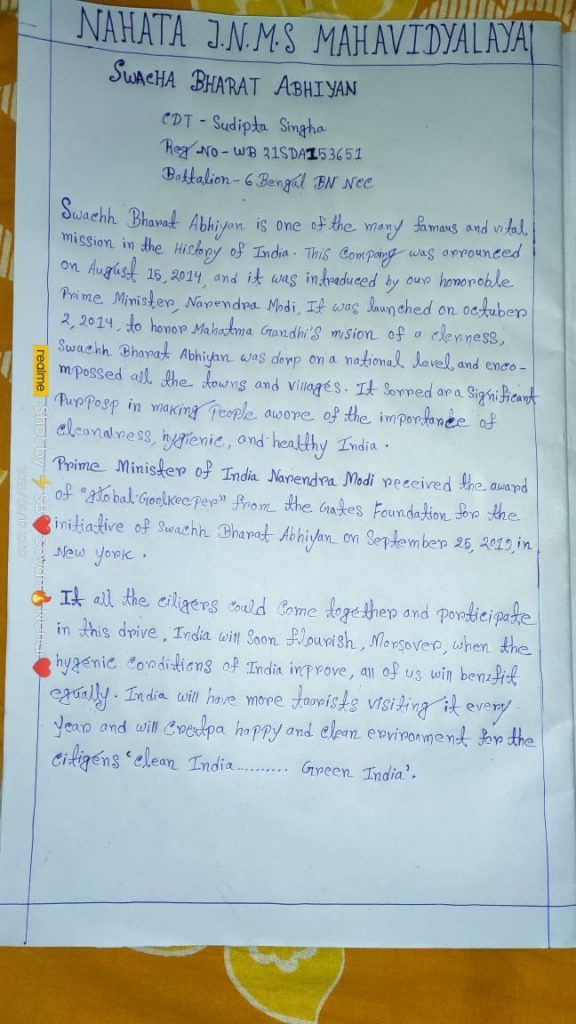 NAHATA J.N.M.S MAHAVIDYALAYA
SWACHA BHARAT ABHIYAN
CDT - Sudipta Singha
Reg No - WB 21SDA153651
Battalion - 6 Bengal BN NCC
Swachh Bharat Abhiyan is one of the many famaus and vital
mission in the History of India. This Compaing was arrounced
on August 15, 2014, and it was intraduced by our honoroble
Prime Minister, Narendra Modi, It was launched on octuber
2, 2014, to honor Mahatma Gandhi's mision of a clenness,
Swachh Bharat Abhiyan was dorp on a national level and enco-
mpossed all the towns and villages. It sorred as a Significant
Purposp in making People awore of the importance of
cleandress, hygienic, and healthy India.
Prime Minister of India Narendra Modi received the award
of "global Goolkeeper" from the Gates Foundation for the
initiative of Swachh Bharat Abhiyan on September 25, 2019, in
New York.
If all the citigers could Come together and porticipate
in this drive, India will Soon flourish, Morsover, when the
hygenic corditions of India inprove, all of us will benefit
equally. India will have more taorists visiting it every
year and will Creatpa happy and clean environment for the
citigens 'clean India.......... Green India'.
realme
Shot by